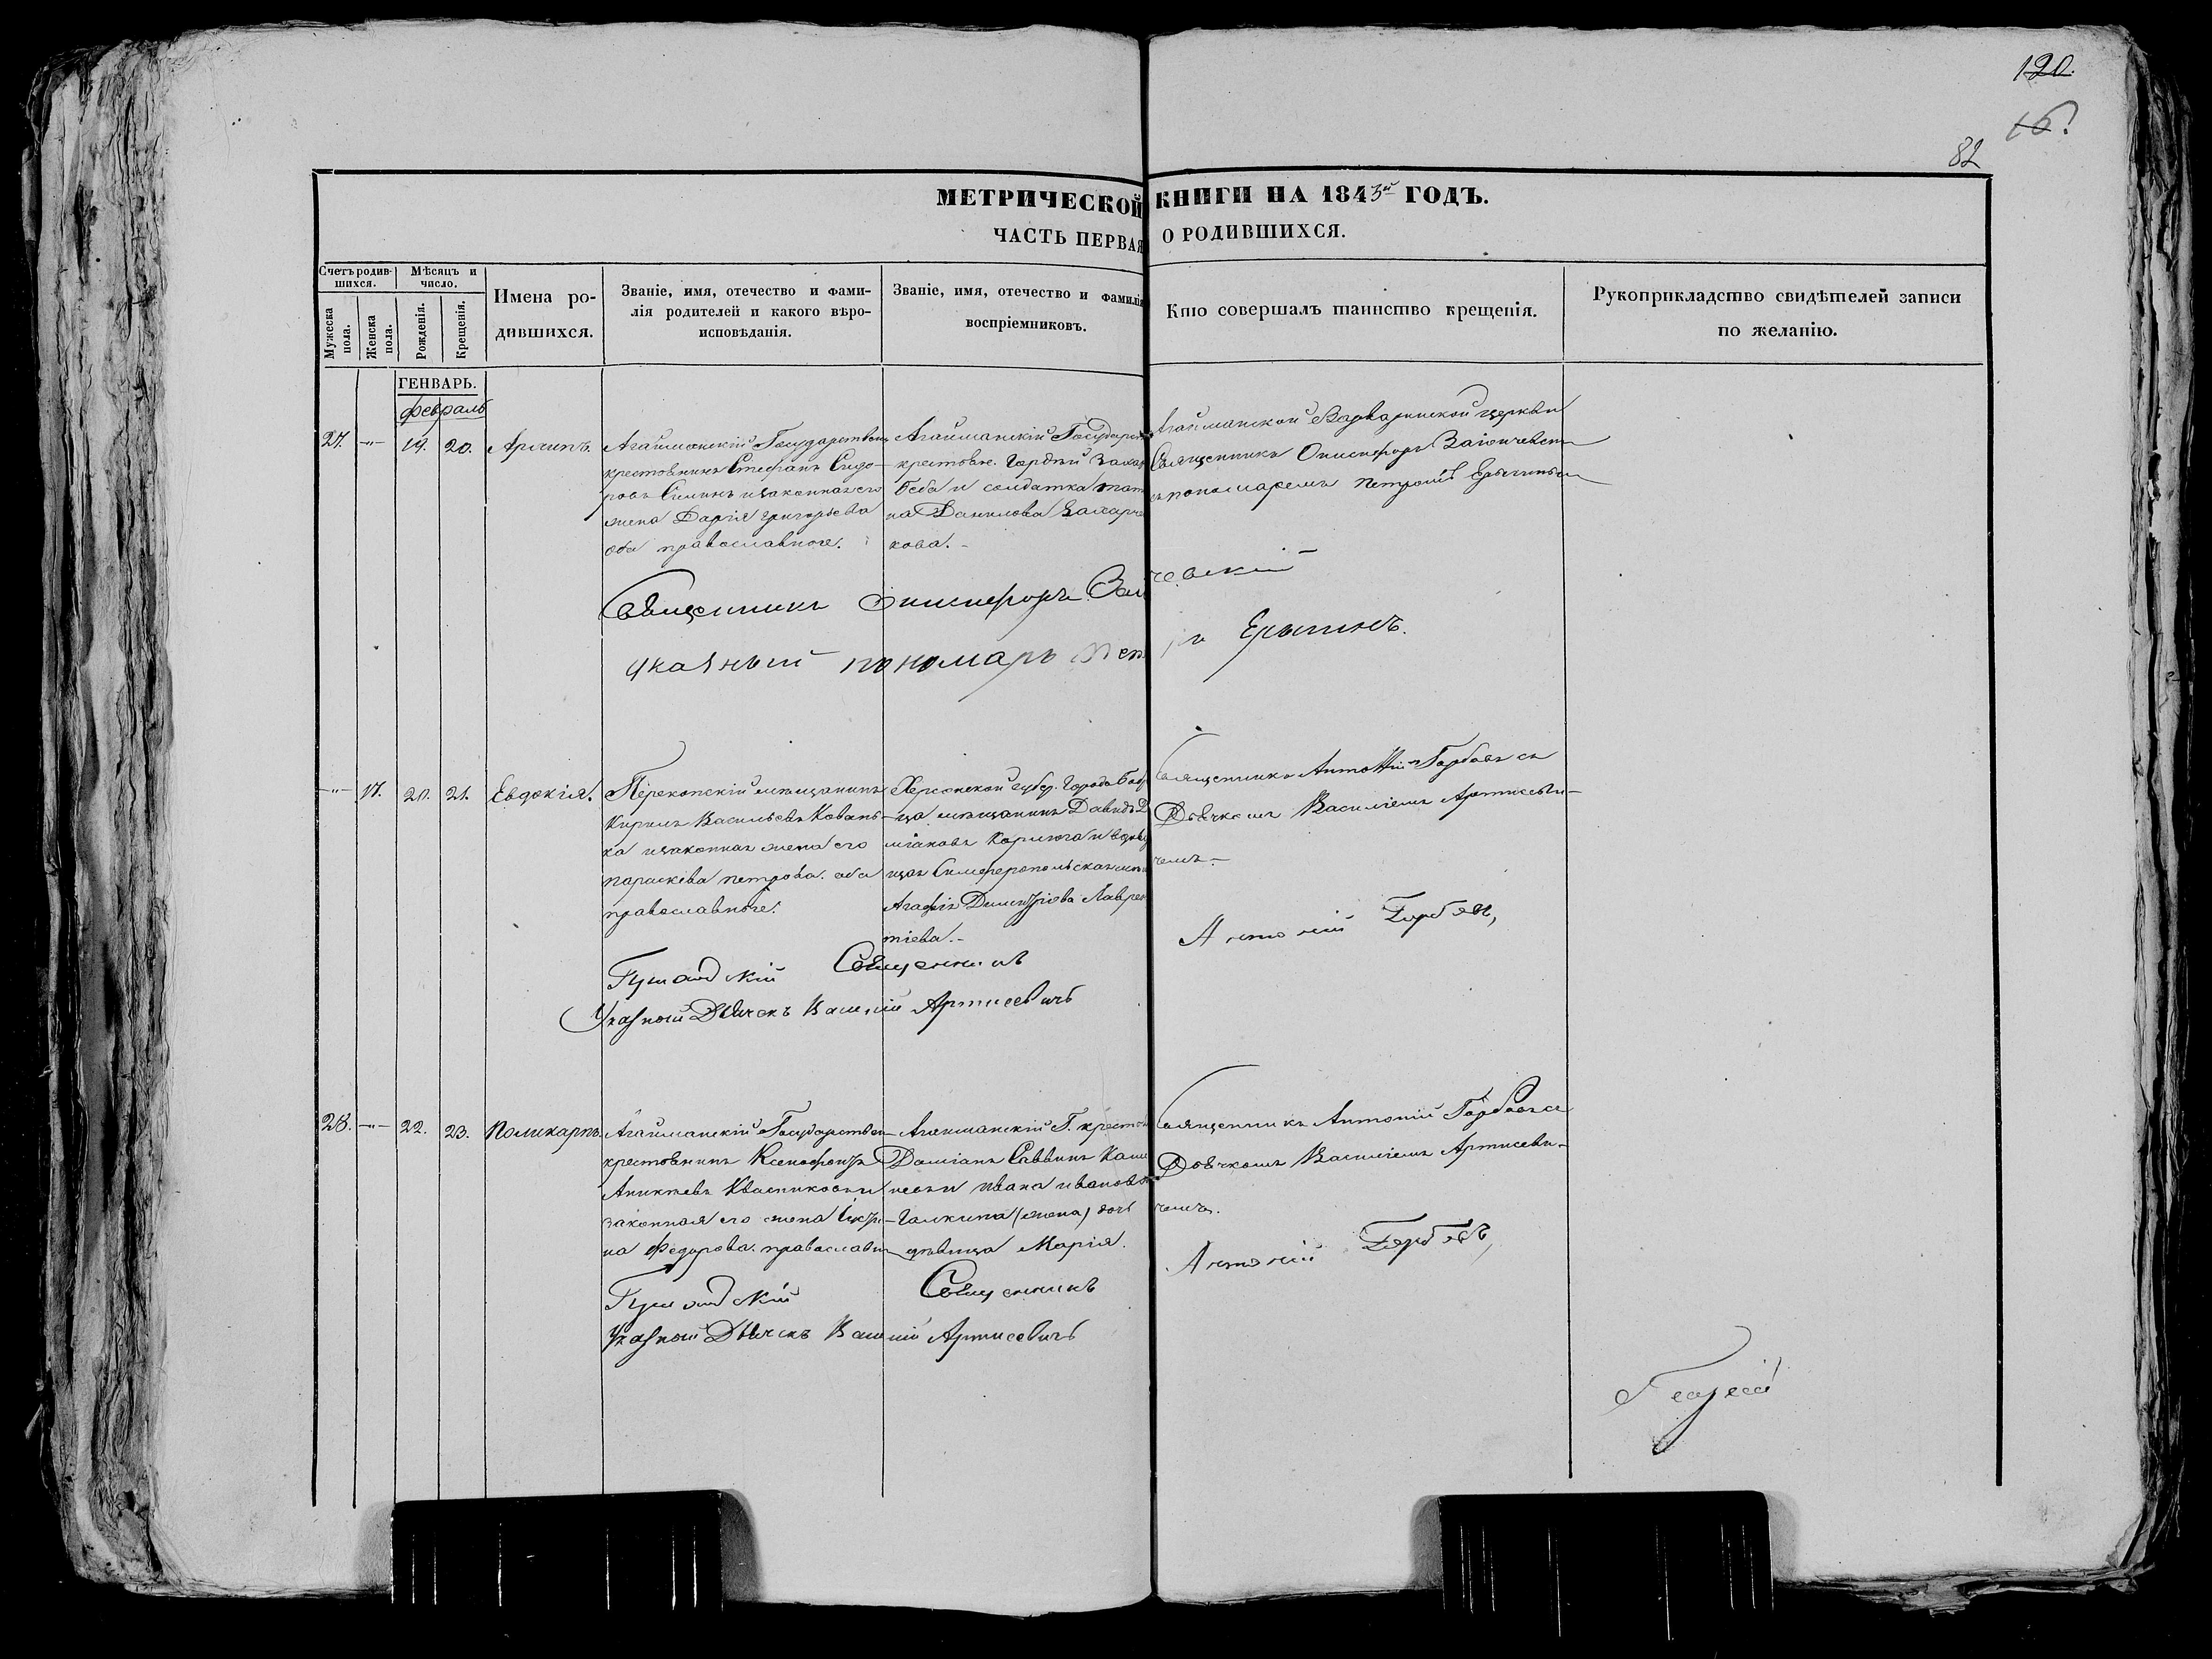 120.
16.
82
МЕТРИЧЕСКОЙ КНИГИ НА 1843й ГОДЪ.
ЧАСТЬ ПЕРВАЯ О РОДИВШИХСЯ.
Счетъ родившихся.
Мужеска пола.
Женска пола.
Мѣсяцъ и число.
Рожденія.
Крещенія.
Имена родившихся.
Званіе, имя, отечество и фамилія родителей и какого вѣроисповѣданія.
Званіе, имя, отечество и фамилія воспріемниковъ.
Кто совершалъ таинство крещенія.
Рукоприкладство свидѣтелей записи по желанію.
ГЕНВАРЬ.
февраль
27. -"- 19. 20. Архипъ.
Агайманскій Государствен
крестьянинъ Стефанъ Сидо-
ровъ и законная его
жена Дарія Григорьева
оба православные.
Агайманскій Государ
крестьян. Гордѣй
и солдатка
на Данилова Захарче
кова.-
Агайманской Варваринской церкви
Священникъ Онисифоръ
съ пономаремъ Петромъ
Священникъ Онисифоръ
указный пономарь Петръ
-"- 17. 20. 21. Евдокія.
Перекопскій мѣщанинъ
Кирилъ Васильевъ Ковань-
ка и законная жена его
Параскева Петрова. оба
православные.
Херсонской губер. Города Боб
ца мѣщанинъ Давидъ
и
Симферопольская
Агафія Димитріова Лаврен
тіева.-
Священникъ Антоній Горбовъ съ
Дьячкомъ Василіемъ Артисеви-
чемъ.-
Священникъ Антоній Горбовъ,
Указный Дьячекъ Василій Артисевичъ
28. -"- 22. 23. Поликарпъ.
Агайманскій Государствен-
крестьянинъ Ксенофонтъ
законная его жена
на Федорова. православн
Агайманскій Г. крестья
Даміанъ Саввинъ
Ивана Иванова
Галкина (жена) дочь
дѣвица Марія.
Священникъ Антоній Горбовъ съ
Дьячкомъ Василіемъ Артисеви-
чемъ.
Священникъ Антоній Горбовъ,
Указный Дьячекъ Василій Артисевичъ